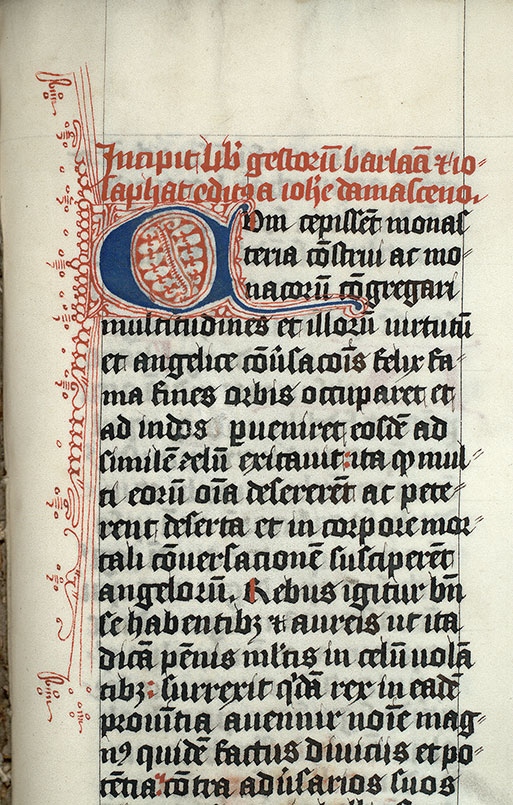 Incipit lib̅ gestoru̅ barlaa̅ ⁊ io-
saphat edit᷒ a ioh̅e damasceno.
Cvm cepisse̅t monas
teria co̅strui ac mo-
nacoru̅ co̅gregari
multitudines et illoru̅ uirtutu̅
et angelice co̅u̅saco̅is felix fa-
ma fines orbis occuparet et
ad indos ꝑueniret eosde̅ ad
simile̅ zelu̅ excitauit: ita ꝙ mul-
ti eoru̅ o̅ia desere̅re̅t ac pete-
rent deserta et in corpore mor-
tali co̅uersatione̅ suscipere̅t
angeloru̅. Rebus igitur bn̅
se habentibꝫ ⁊ aureis ut ita
dica̅ pe̅nis ml̅tis in celu̅ uola̅
tibꝫ: surrexit q'da̅ rex in eade̅
prouincia auennir no̅ie mag-
nꝰ quide̅ factus diuiciis et po-
te̅tia co̅tra adu̅sarios suos